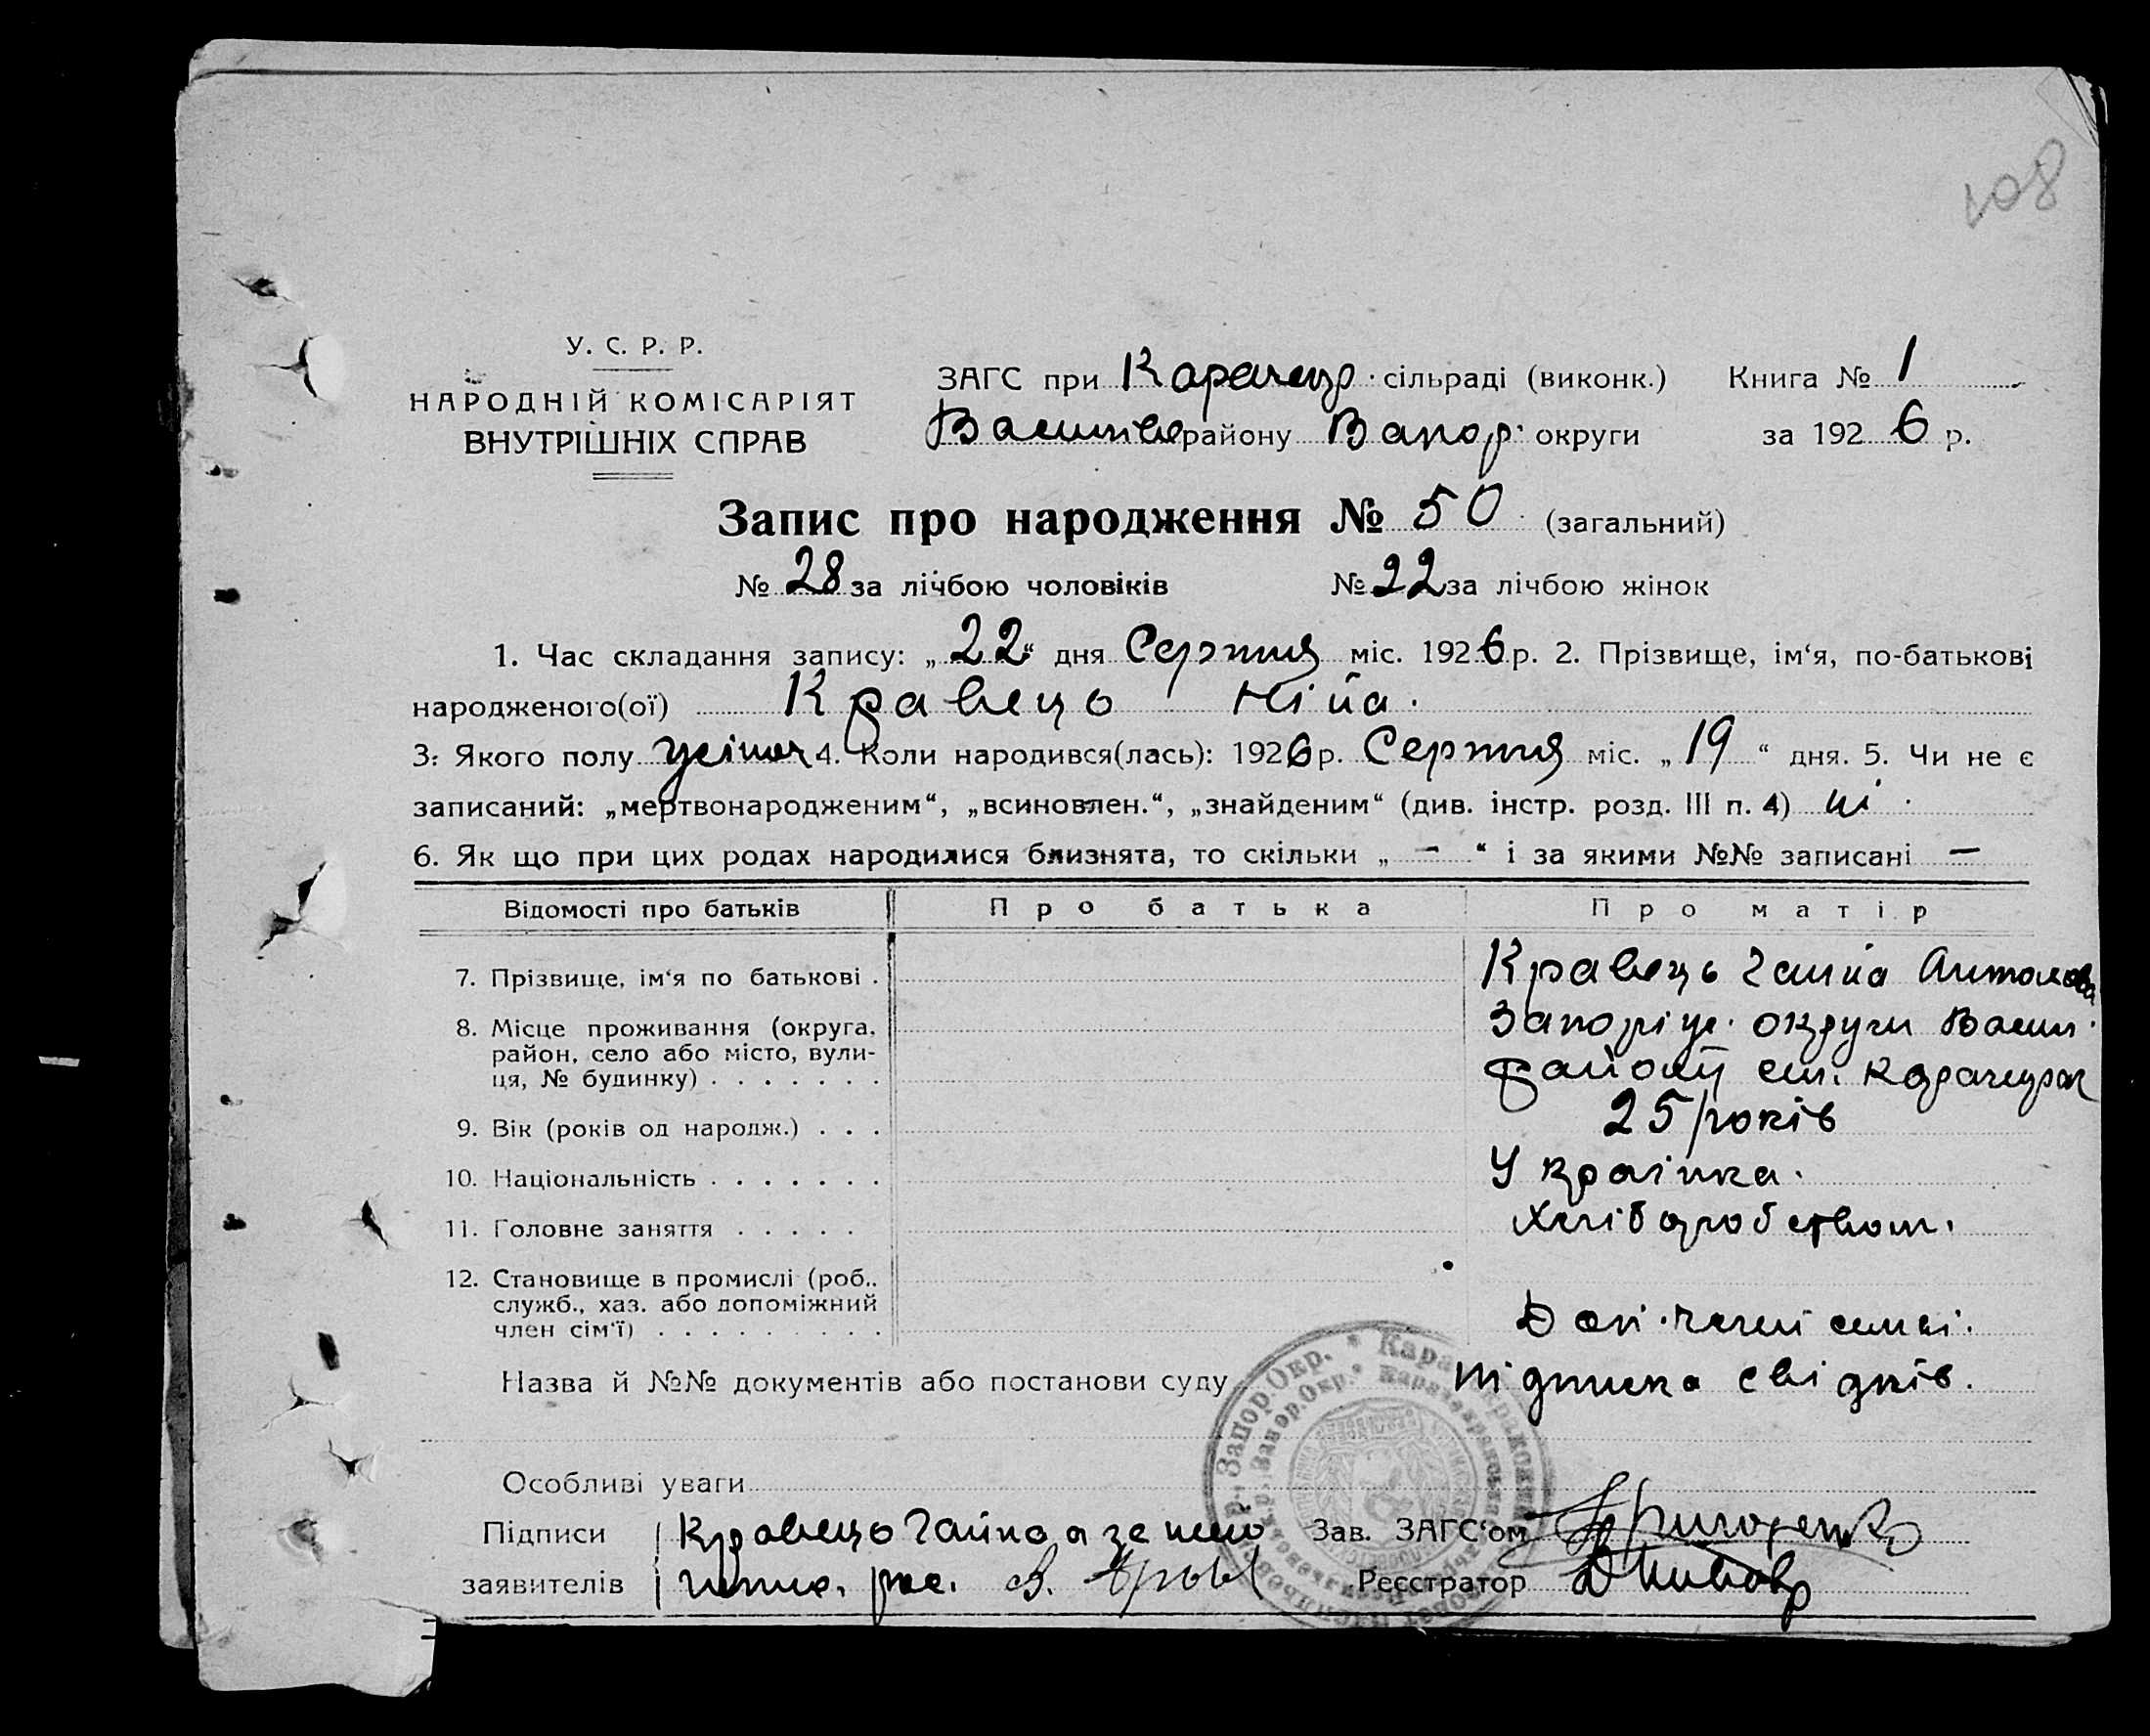 108
У. С. Р. Р.
НАРОДНІЙ КОМІСАРІЯТ
ВНУТРІШНІХ СПРАВ
ЗАГС при Карачекр. сільраді (виконк.) Книга № 1
Василів району Запор. округи за 1926 р.
Запис про народження № 50 (загальний)
№ 28 за лічбою чоловіків № 22 за лічбою жінок
1. Час складання запису: „22“ дня Серпня міс. 1926 р. 2. Прізвище, ім‘я, по-батькові
народженого(ої) Кравець Ніна.
3. Якого полу жіноч 4. Коли народився(лась): 1926 р. Серпня міс. „19“ дня. 5. Чи не є
записаний: „мертвонародженим“, „всиновлен.“, „знайденим“ (див. інстр. розд. III п. 4) ні.
6. Як що при цих родах народилися близнята, то скільки „ — “ і за якими №№ записані —
Відомості про батьків Про батька Про матір
7. Прізвище, ім‘я по батькові . Кравець Ганна Антонова
8. Місце проживання (округа, Запоріж. округи Васил.
район, село або місто, вули- району сел. Карачекрак
ця, № будинку) . . . . . . .
9. Вік (років од народж.) . . . 25 років
10. Національність . . . . . . . Українка.
11. Головне заняття . . . . . Хліборобством.
12. Становище в промислі (роб.,
служб., хаз. або допоміжний
член сім‘ї) . . . . . . . . . Доп. член семьі.
Назва й №№ документів або постанови суду Підписка свідків.
Особливі уваги
Підписи Кравець Ганна а за нею Зав. ЗАГС‘ом Григоренко
заявителів непис. рос. Реєстратор